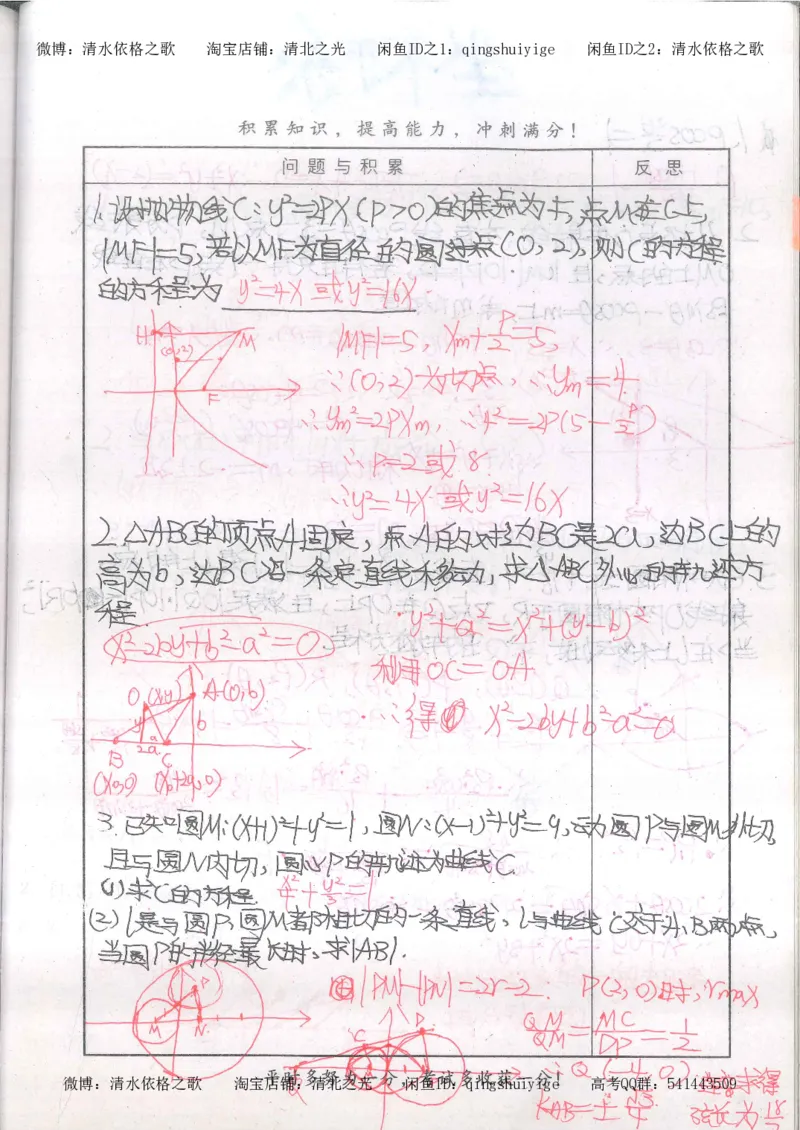 微博：清水依格之歌 淘宝店铺：清北之光 闲鱼ID之1：qingshuiyige 闲鱼ID之2：清水依格之歌
积累知识，提高能力，冲刺满分！
问题与积累 反思
1.设抛物线C：y²=2PX(P>0)的焦点为F，点M在C上，
|MF|=5，若以MF为直径的圆过点(0,2)，则C的方程
的方程为 y²=4X或y²=16X.
H (0,2) M F
|MF|=5，Xm+P/2=5，
∵(0,2)为切点，∴Ym=4
∴Ym²=2PXm，∴4²=2P(5-P/2)
∴P=2或8
∴y²=4X或y²=16X
2.△ABC的顶点A固定，点A的对边BC是2a，边BC上的
高为b，边BC沿一条定直线移动，求△ABC外心的轨迹方
程. y²+a²=x²+(y-b)²
x²-2by+b²-a²=0.
利用OC=OA
O(x,y) A(0,b) y b a 2a B C
∴得 x²-2by+b²-a²=0
3.已知圆M：(X+1)²+y²=1，圆N：(x-1)²+y²=9，动圆P与圆M外切，
且与圆N内切，圆心P的轨迹为曲线C.
(1)求C的方程 x²/4+y²/3=1
(2)l是与圆P，圆M都相切的一条直线，l与曲线C交于A、B两点，
当圆P的半径最大时，求|AB|.
M N P
由|PM|-|PN|=2r-2. P(2,0)时，rmax
QM/QM=MC/DP=1/2
∴Q(-4,0)
平时多努力一分，考试多收获一分！
微博：清水依格之歌 淘宝店铺：清北之光 闲鱼ID：qingshuiyige 高考QQ群：541443509